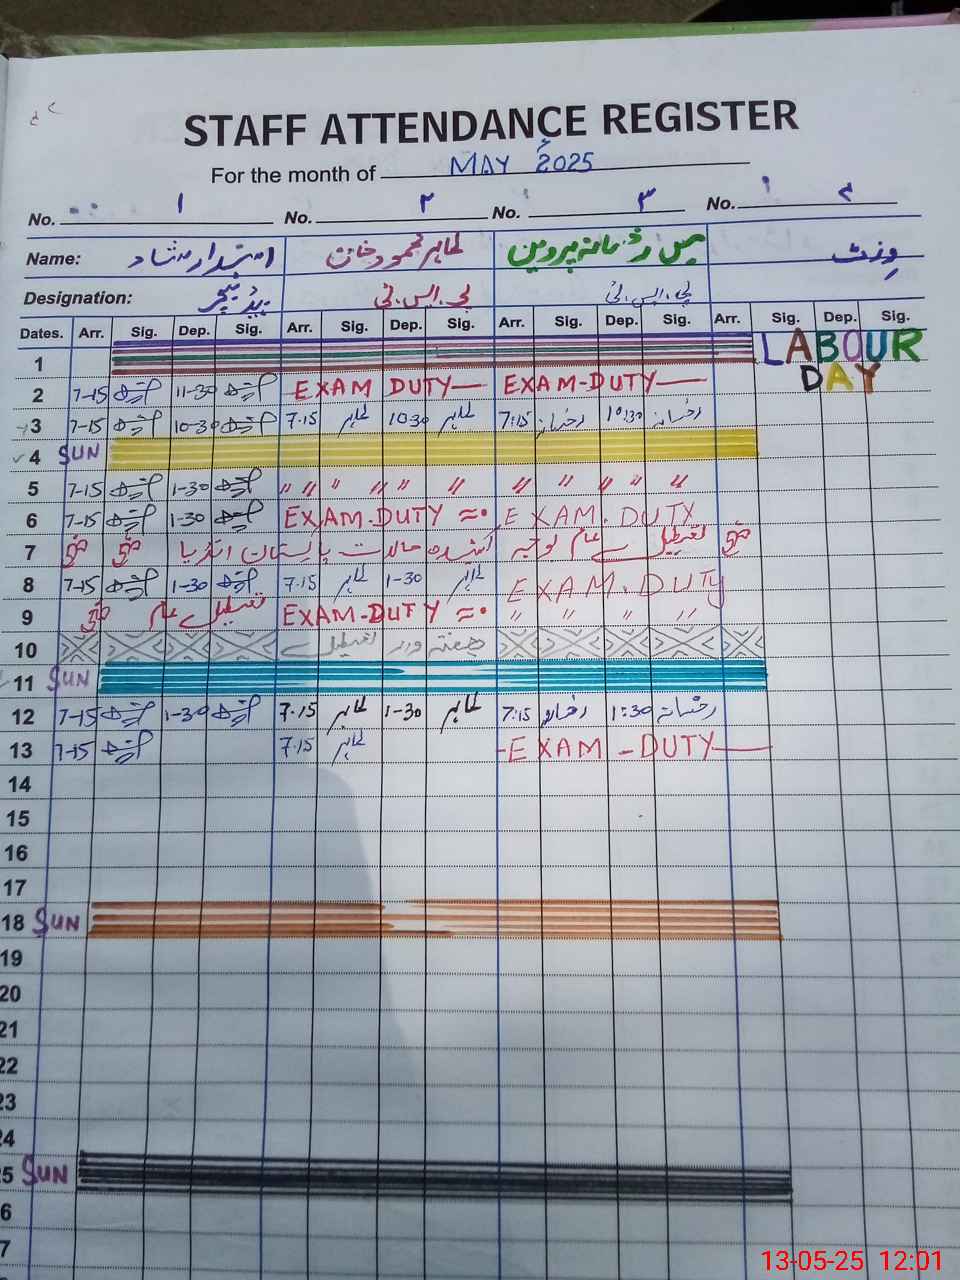 STAFF ATTENDANCE REGISTER
For the month of MAY 2025
No. ۱ No. ۲ No. ۳ No. ۴
Name: طاہر محمود خان مس رخسانہ پروین وزٹ
Designation: پی.ایس.ٹی پی.ایس.ٹی
Dates. Arr. Sig. Dep. Sig. Arr. Sig. Dep. Sig. Arr. Sig. Dep. Sig. Arr. Sig. Dep. Sig.
1 LABOUR DAY
2 7-15 11-30 EXAM DUTY EXAM-DUTY
3 7-15 10-30 7.15 طاہر 1030 طاہر 7:15 رخسانہ 10:30 رخسانہ
4 SUN
5 7-15 1-30 〃 〃 〃 〃 〃 〃 〃 〃 〃 〃 〃
6 7-15 1-30 EXAM.DUTY EXAM.DUTY
7 پاکستان انڈیا کشیدہ حالات کی وجہ سے عام تعطیل
8 7-15 1-30 7.15 طاہر 1-30 طاہر EXAM.DUTY
9 عام تعطیل EXAM-DUTY 〃 〃 〃 〃
10 ہفتہ وار تعطیل
11 SUN
12 7-15 1-30 7.15 طاہر 1-30 طاہر 7:15 رخسانہ 1:30 رخسانہ
13 7-15 7.15 طاہر EXAM-DUTY
14
15
16
17
18 SUN
19
20
21
22
23
24
5 SUN
6
7
13-05-25 12:01